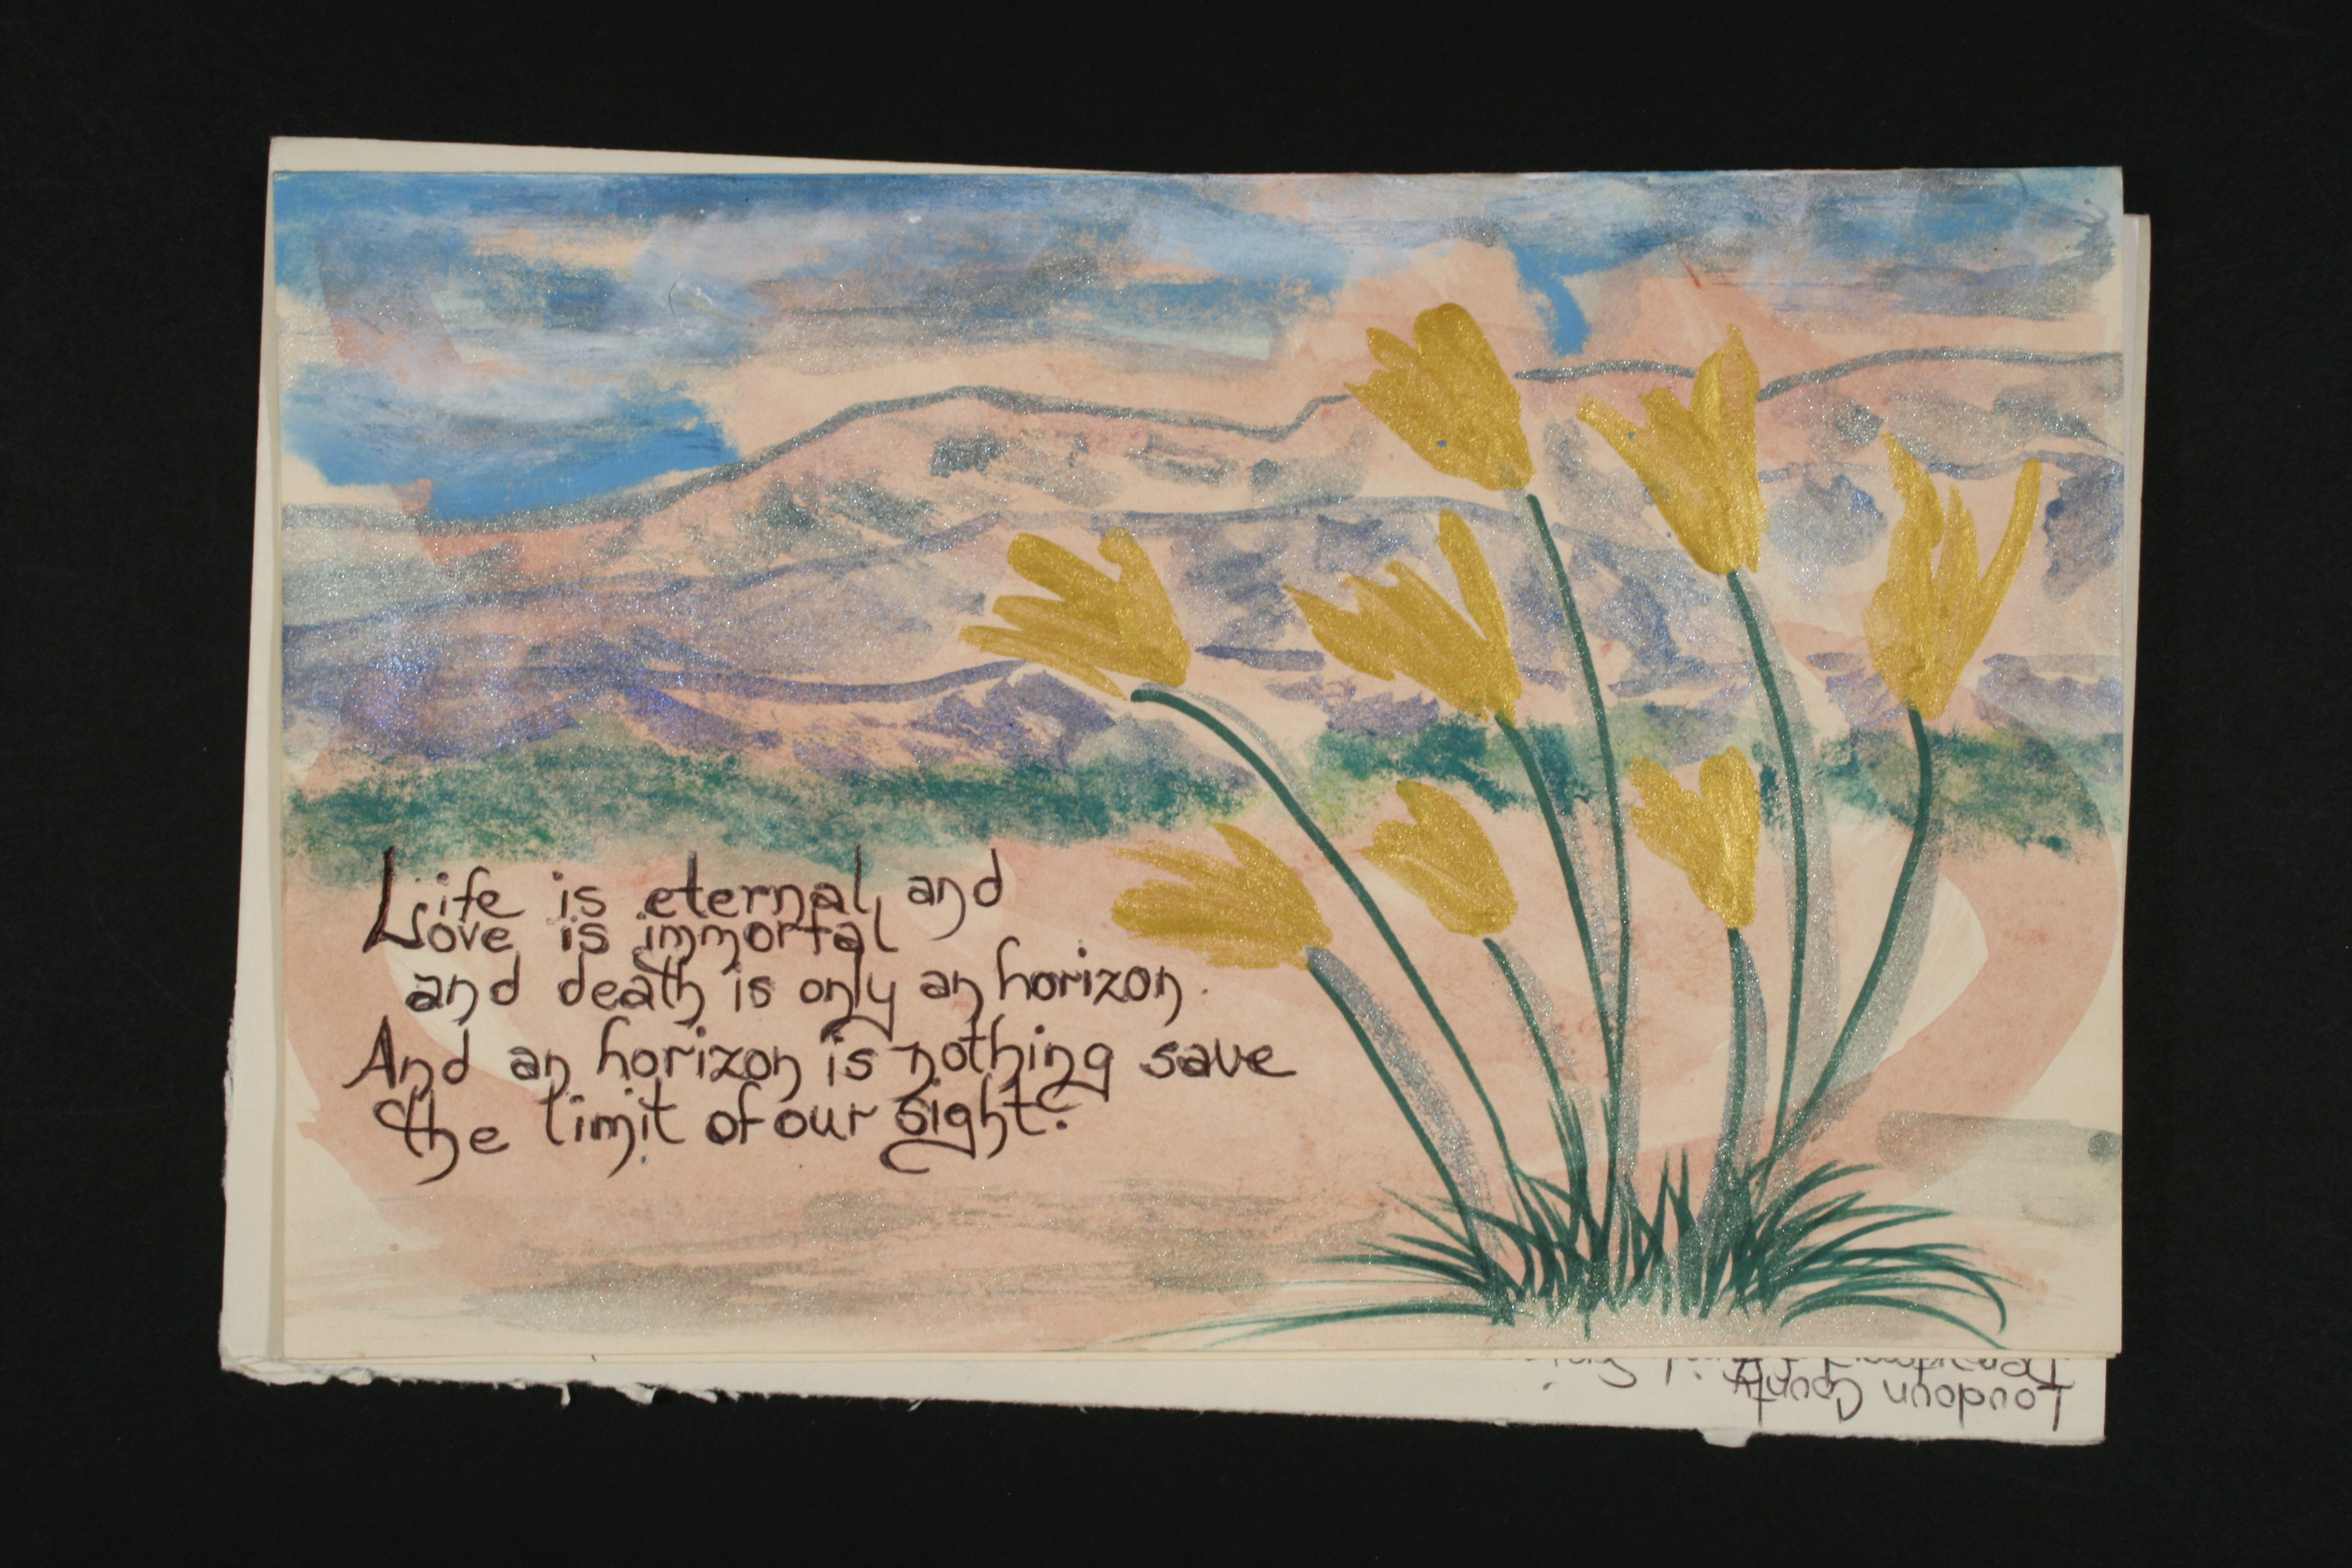 Life is eternal, and
Love is immortal
and death is only an horizon.
And an horizon is nothing save
the limit of our sight.
Loudoun County